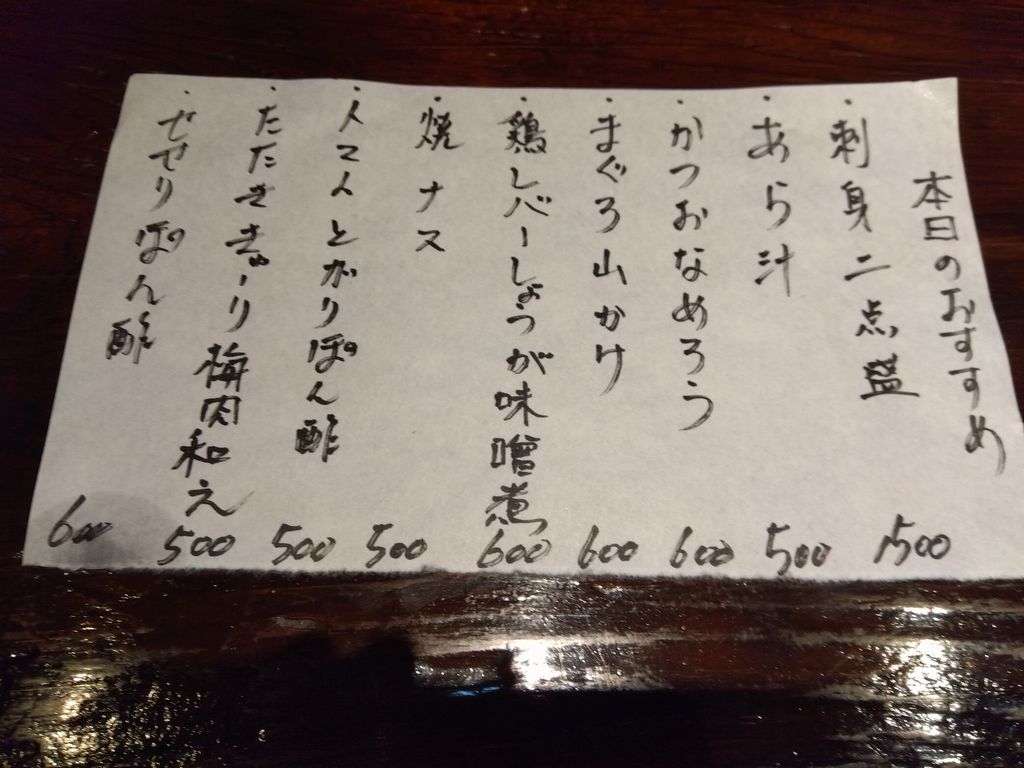 本日のおすすめ
・刺身二点盛 1500
・あら汁 500
・かつおなめろう 600
・まぐろ山かけ 600
・鶏レバーしょうが味噌煮 600
・焼ナス 500
・とがりぽん酢 500
・たたききゅーり梅肉和え 500
・せせりぽん酢 600